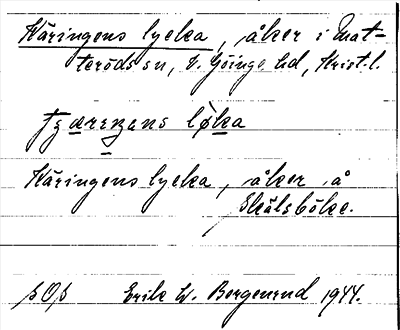 Käringens lycka, åker i Mat-
teröds sn, V. Göinge hd, Krist. l.
tʒæreŋens løka
Käringens lycka, åker å
Skälsböke.
SOS Erik W. Bergenrud 1944.